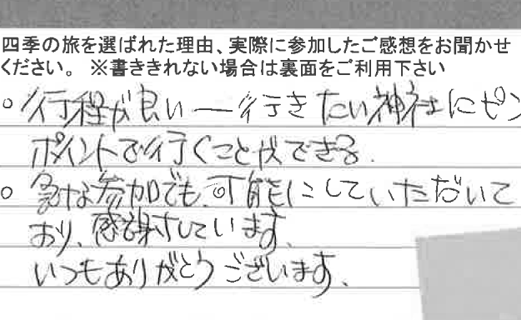 四季の旅を選ばれた理由、実際に参加したご感想をお聞かせ
ください。 ※書ききれない場合は裏面をご利用下さい
○行程が良い―行きたい神社にピン
ポイントで行くことができる.
○急な参加でも、可能にしていただいて
おり、感謝しています.
いつもありがとうございます.